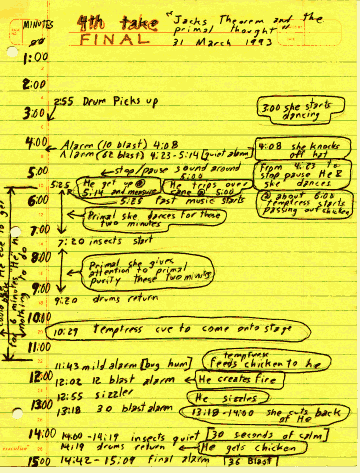 MINUTES 4th take "Jacks Theorem and the
FINAL primal thought"
:00 31 March 1993
1:00
2:00
2:55 Drum Picks up
3:00 she starts
dancing
3:00
4:00 Alarm (10 blast) 4:08
4:08 she knocks
off hat
Alarm (62 blast) 4:23-5:14 (quiet alarm)
From 4:23 to
stop pause He &
she dances
5:00 stop/pause sound around
5:00
5:25 He get up @
5:14 and
He trips over
cane @ 5:00
5:25 fast music starts
@ about 6:00
temptress starts
passing out chicken
6:00
Primal she dances for those
two minutes
7:00
7:20 insects start
8:00
Primal she gives
attention to primal
purity these two minutes
9:00
9:20 drums return
10:00
10:29 temptress cue to come onto stage
11:00
temptress
feeds chicken to he
11:43 mild alarm [bug hum]
12:00 12:02 12 blast alarm He creates fire
12:55 sizzler He sizzles
13:00 13:18 30 blast alarm 13:18-14:00 she cuts back
at He
14:00 14:00-14:19 insects quiet [30 seconds of calm]
14:19 drums return He gets chicken
15:00 14:42-15:09 final alarm [36 Blast]
could
6 minutes
for nothing to do